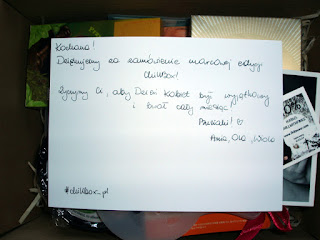 Kochana!
Dziękujemy za zamówienie marcowej edycji
chillboxa!
Życzymy Ci, aby Dzień Kobiet był wyjątkowy
i trwał cały miesiąc!
Buziaki!
Ania, Ola, Wiola
#chillbox_pl
0%